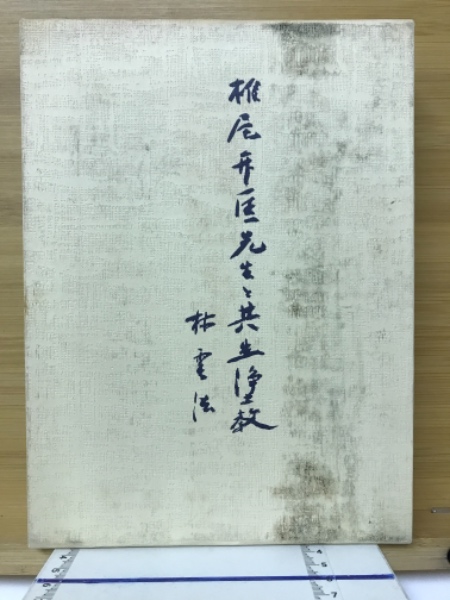 椎尾弁匡先生と共生浄土教
林霊法